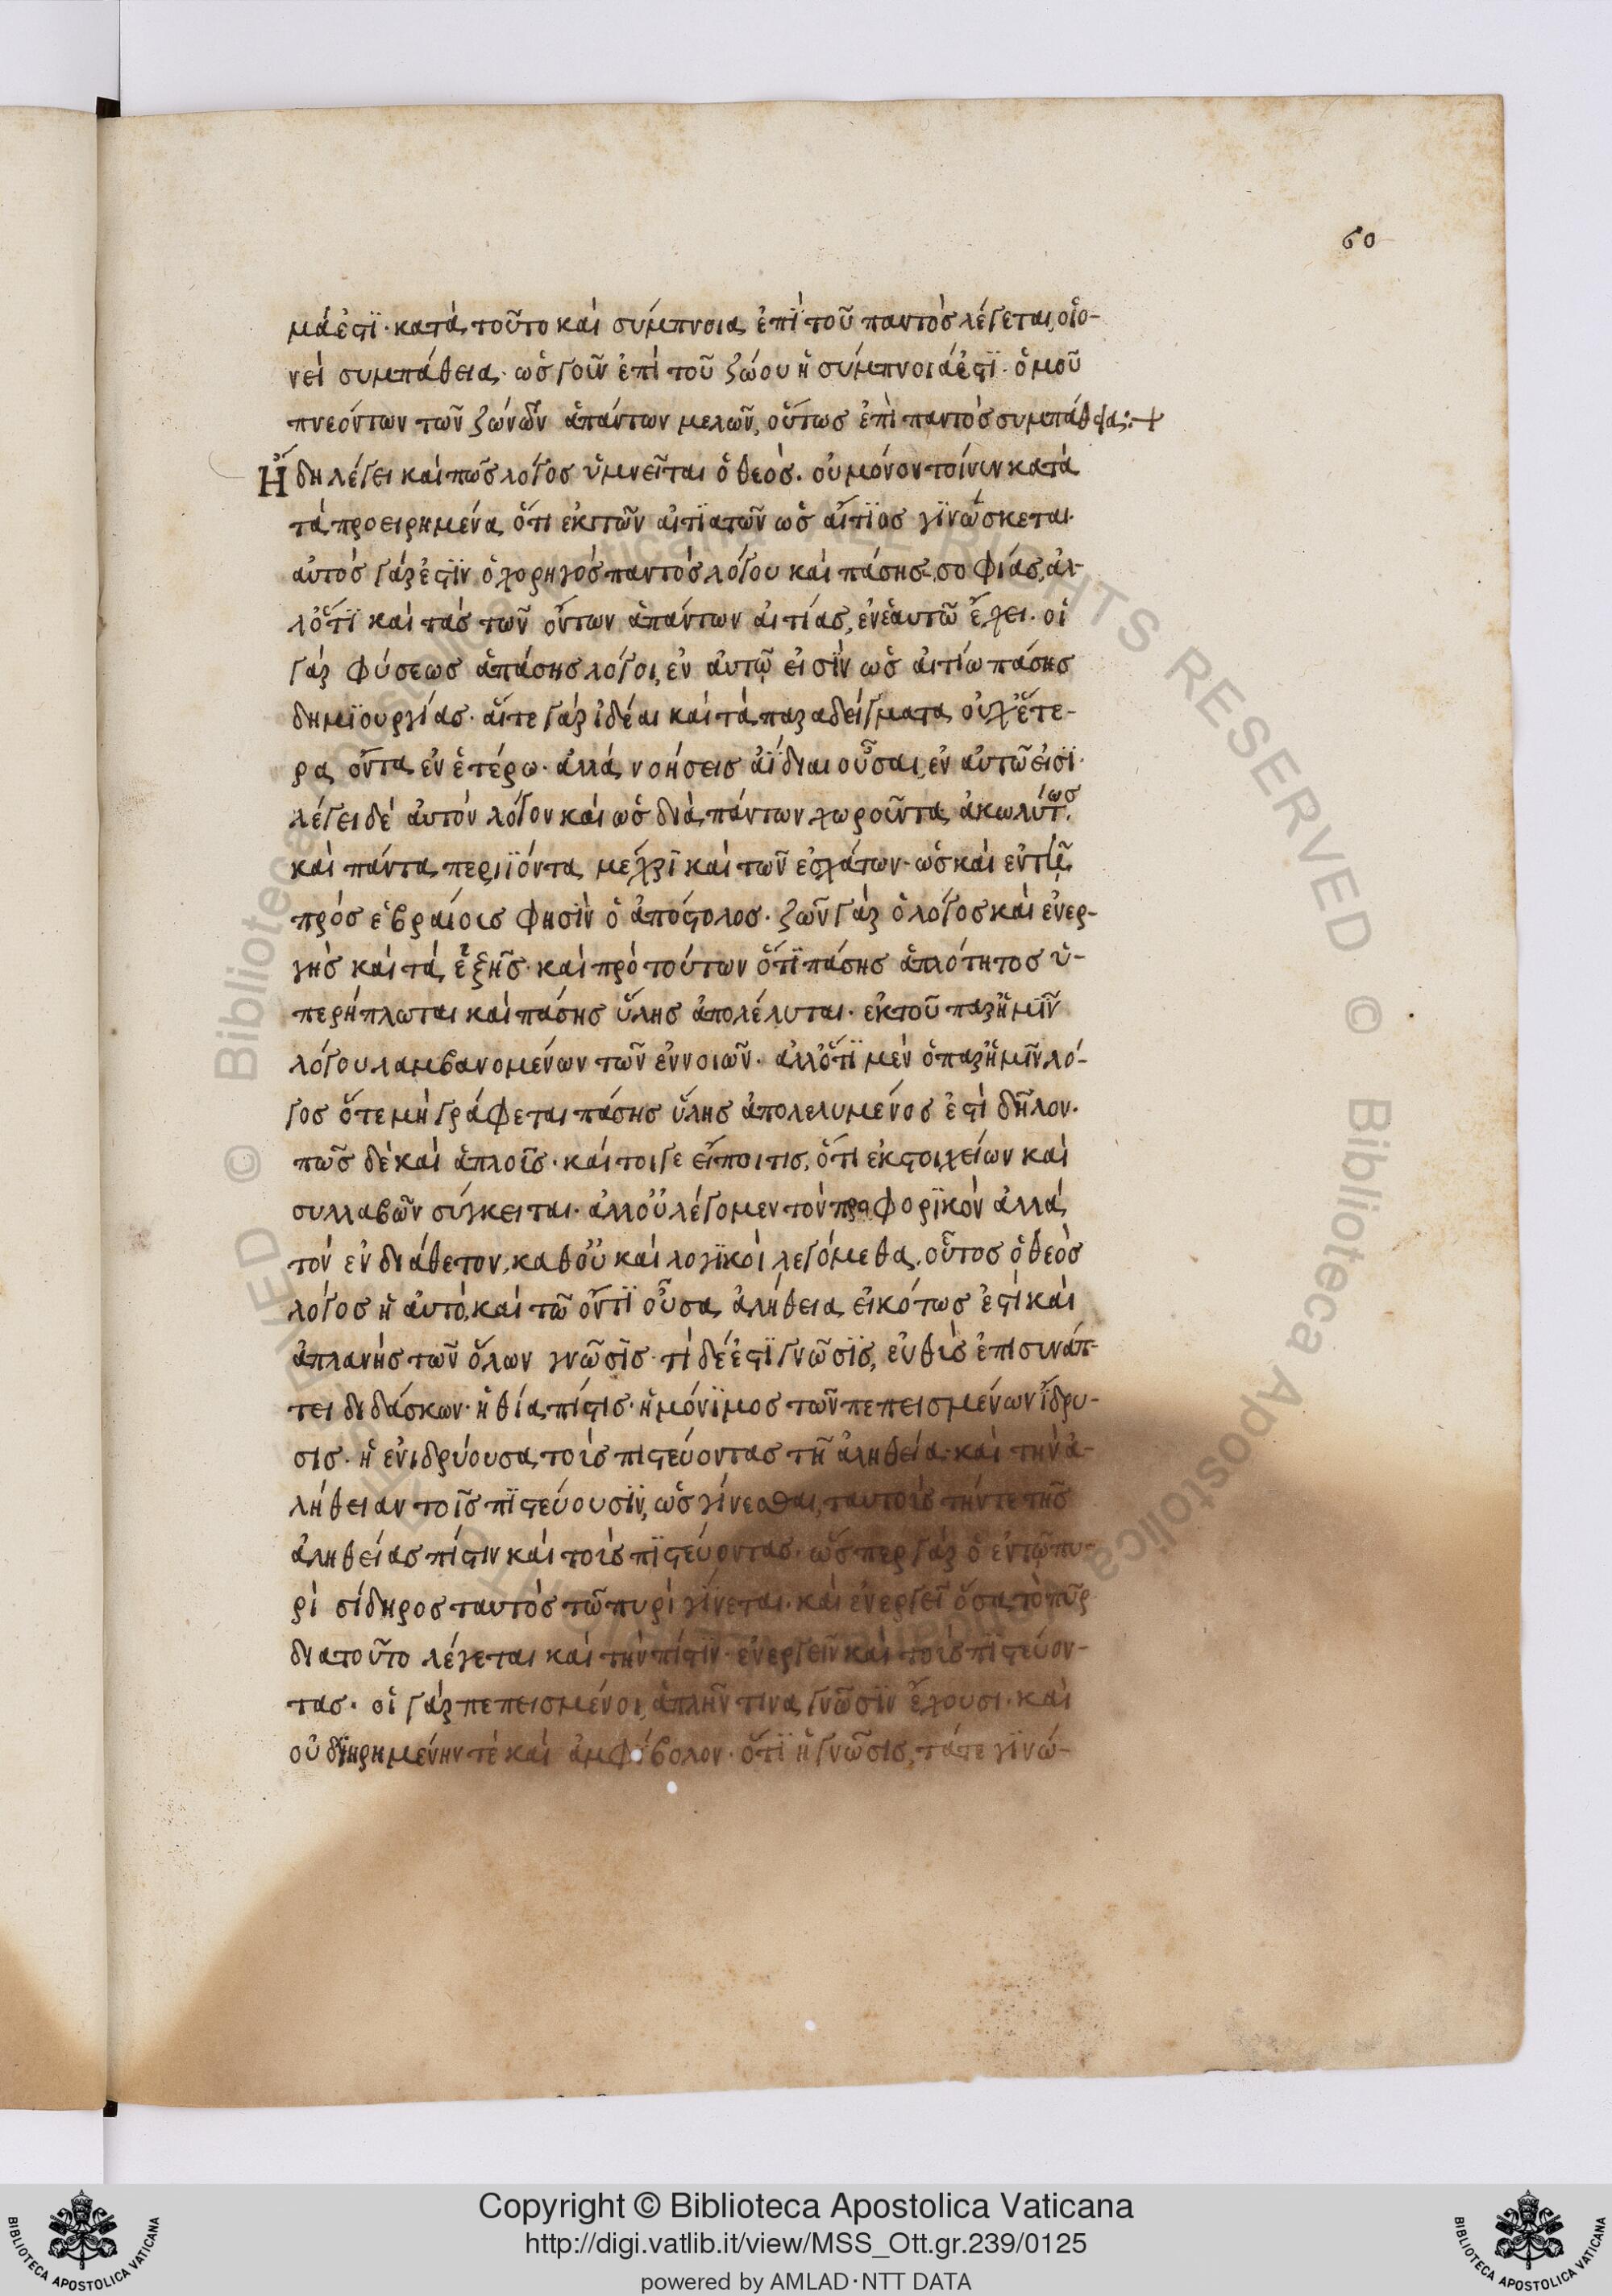 60
μά ἐστϊ· κατὰ τοῦτο καὶ σύμπνοια ἐπῒ τοῦ παντὸς λέγεται, οἱο-
νεὶ συμπάθεια· ὡς γοῦν ἐπὶ τοῦ ζώου ἡ σύμπνοιά ἐστϊ· ὁμοῦ
πνεόντων τῶν ζώνδῶν ἁπάντων μελῶν, οὕτως ἐπὶ παντὸς συμπάθεια:+
Ἤδη λέγει καὶ πῶς λόγος ὑμνεῖται ὁ θεός. οὐ μόνον τοίνυν κατὰ
τὰ προειρημένα, ὅτι ἐκ τῶν αἰτϊατῶν ὡς αἴτϊος γϊνώσκεται·
αὐτὸς γάρ ἐστϊν ὁ χορηγὸς παντὸς λόγου καὶ πάσης σοφίας, ἀλ-
λ' ὅτϊ καὶ τὰς τῶν ὄντων ἁπάντων αἰτίας, ἐν ἑαυτῶ ἔχει. οἱ
γὰρ φύσεως ἁπάσης λόγοι, ἐν αὐτῷ εἰσϊν ὡς αἰτίω πάσης
δημϊουργίας. αἵτε γὰρ ἰδέαι καὶ τὰ παραδείγματα οὐχ ἕτε-
ρα ὄντα ἐν ἑτέρω· ἀλλὰ νοήσεις ἀΐδιαι οὖσαι, ἐν αὐτῶ εἰσϊ·
λέγει δὲ αὐτὸν λόγον καὶ ὡς διὰ πάντων χωροῦντα ἀκωλύτως.
καὶ πάντα περιϊόντα μέχρϊ καὶ τῶν ἐσχάτων· ὡς καὶ ἐν τῆ
πρὸς ἑβραίοις φησὶν ὁ ἀπόστολος. ζῶν γὰρ ὁ λόγος καὶ ἐνερ-
γὴς καὶ τὰ ἑξῆς· καὶ πρὸ τούτων ὅτϊ πάσης ἁπλότητος ὑ-
περήπλωται καὶ πάσης ὕλης ἀπολέλυται. ἐκ τοῦ παρ' ἡμῖν
λόγου λαμβανομένων τῶν ἐννοιῶν. ἀλλ' ὅτϊ μὲν ὁ παρ' ἡμῖν λό-
γος ὅτε μὴ γράφεται πάσης ὕλης ἀπολελυμένος ἐστὶ δῆλον.
πῶς δὲ καὶ ἁπλοῖς· καίτοιγε εἴποι τις, ὅτι ἐκ στοιχείων καὶ
συλλαβῶν σύγκειται. ἀλλ' οὐ λέγομεν τὸν προφορϊκὸν ἀλλὰ
τὸν ἐνδιάθετον, καθ' οὗ καὶ λογϊκοὶ λεγόμεθα. οὗτος ὁ θεὸς
λόγος ἡ αὐτὸ, καὶ τῶ ὄντϊ οὖσα ἀλήθεια, εἰκότως ἐστὶ καὶ
ἀπλανὴς τῶν ὅλων γνῶσϊς· τί δέ ἐστϊ γνῶσϊς, εὐθὺς ἐπισυνάπ-
τει διδάσκων· ἡ θία πίστις· ἡ μόνϊμος τῶν πεπεισμένων ἵδρυ-
σις. ἡ ἐνιδρύουσα τοὺς πιστεύοντας τῆ ἀληθεία· καὶ τὴν ἀ-
λήθειαν τοῖς πϊστεύουσϊν, ὡς γίνεσθαι, ταυτοὺς τήν τε τῆς
ἀληθείας πίστιν καὶ τοὺς πϊστεύοντας. ὥσπερ γὰρ ὁ ἐν τῷ πυ-
ρὶ σίδηρος ταυτὸς τῶ πυρὶ γίνεται, καὶ ἐνεργεῖ ὅσα τὸ πῦρ
διατοῦτο λέγεται καὶ τὴν πίστϊν ἐνεργεῖν καὶ τοὺς πϊστεύον-
τας. οἱ γὰρ πεπεισμένοι, ἁπλῆν τινα γνῶσϊν ἔχουσι. καὶ
οὐ δϊηρημένην τὲ καὶ ἀμφίβολον· ὅτϊ ἡ γνῶσις, τά τε γϊνώ-
Copyright © Biblioteca Apostolica Vaticana
http://digi.vatlib.it/view/MSS_Ott.gr.239/0125
powered by AMLAD·NTT DATA